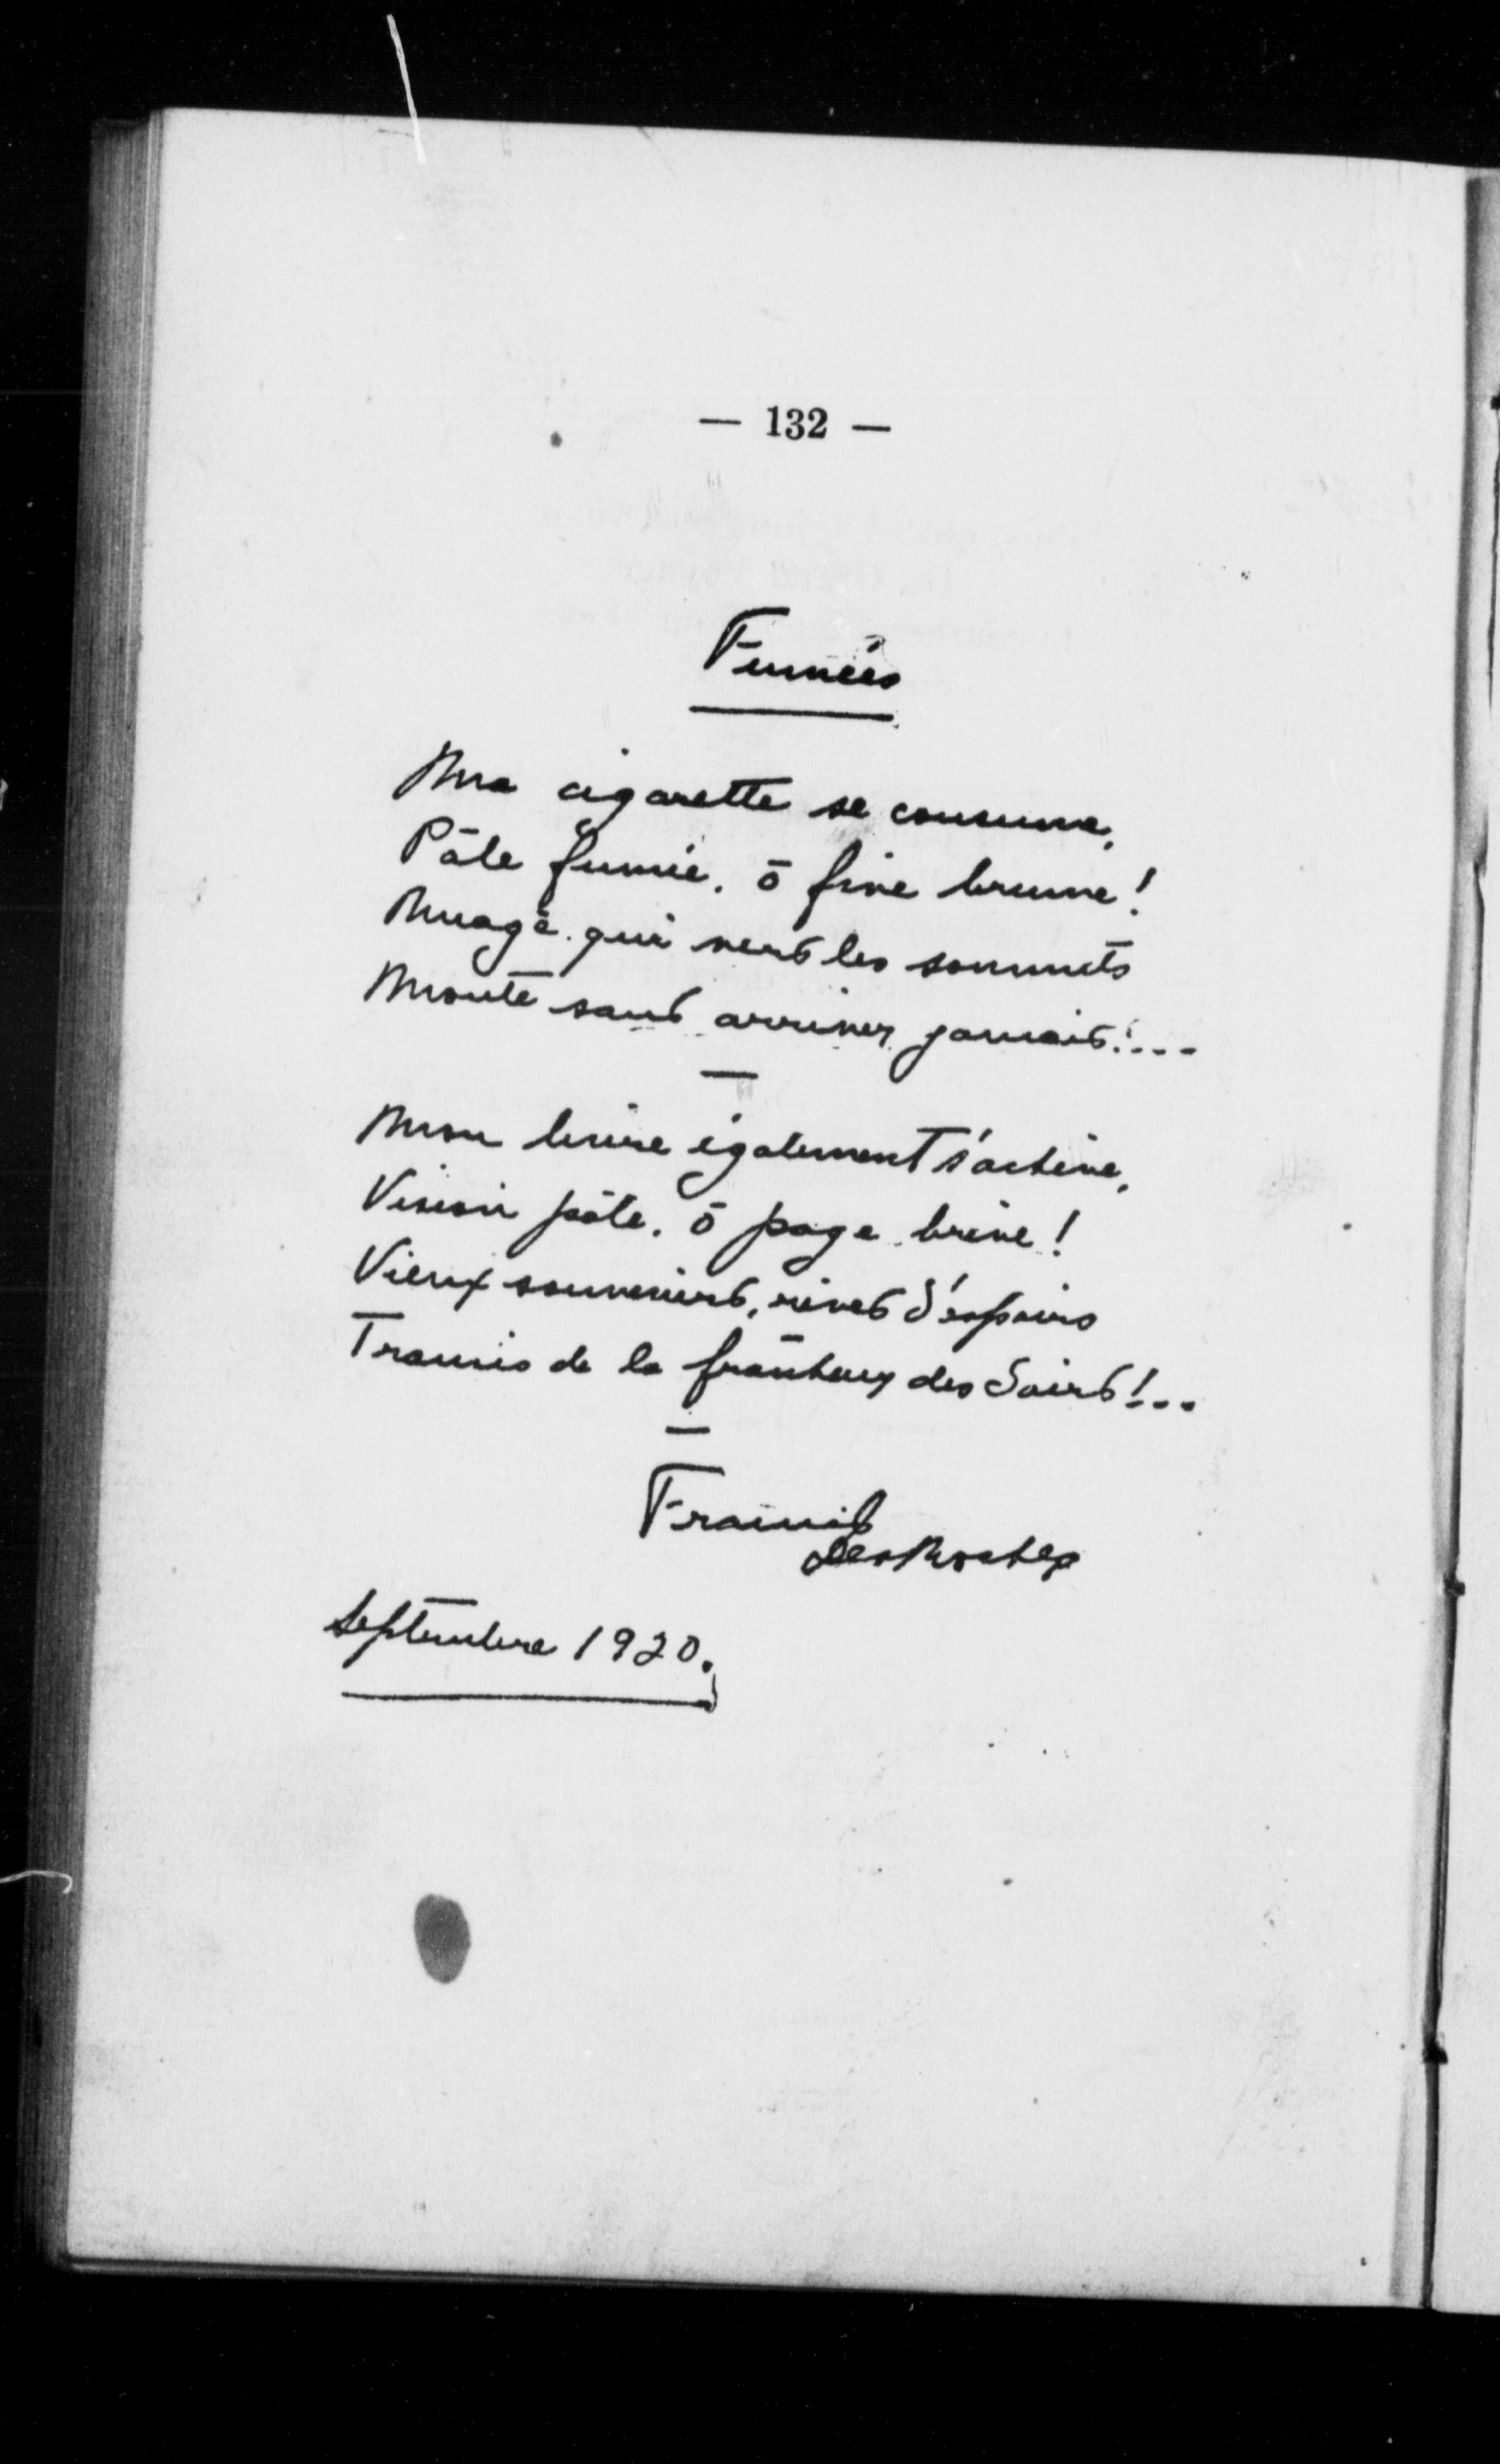 — 132 —
Fumées
Ma cigarette se consume,
Pâle fumée, ô fine brume!
Nuage qui vers les sommets
Monte sans arriver jamais!...
—
Mon livre également s'achève,
Vision pâle, ô page brève!
Vieux souvenirs, rêves d'espoirs
Tramés de la fraîcheur des Soirs!...
—
Francis
DesRoches
Septembre 1920.